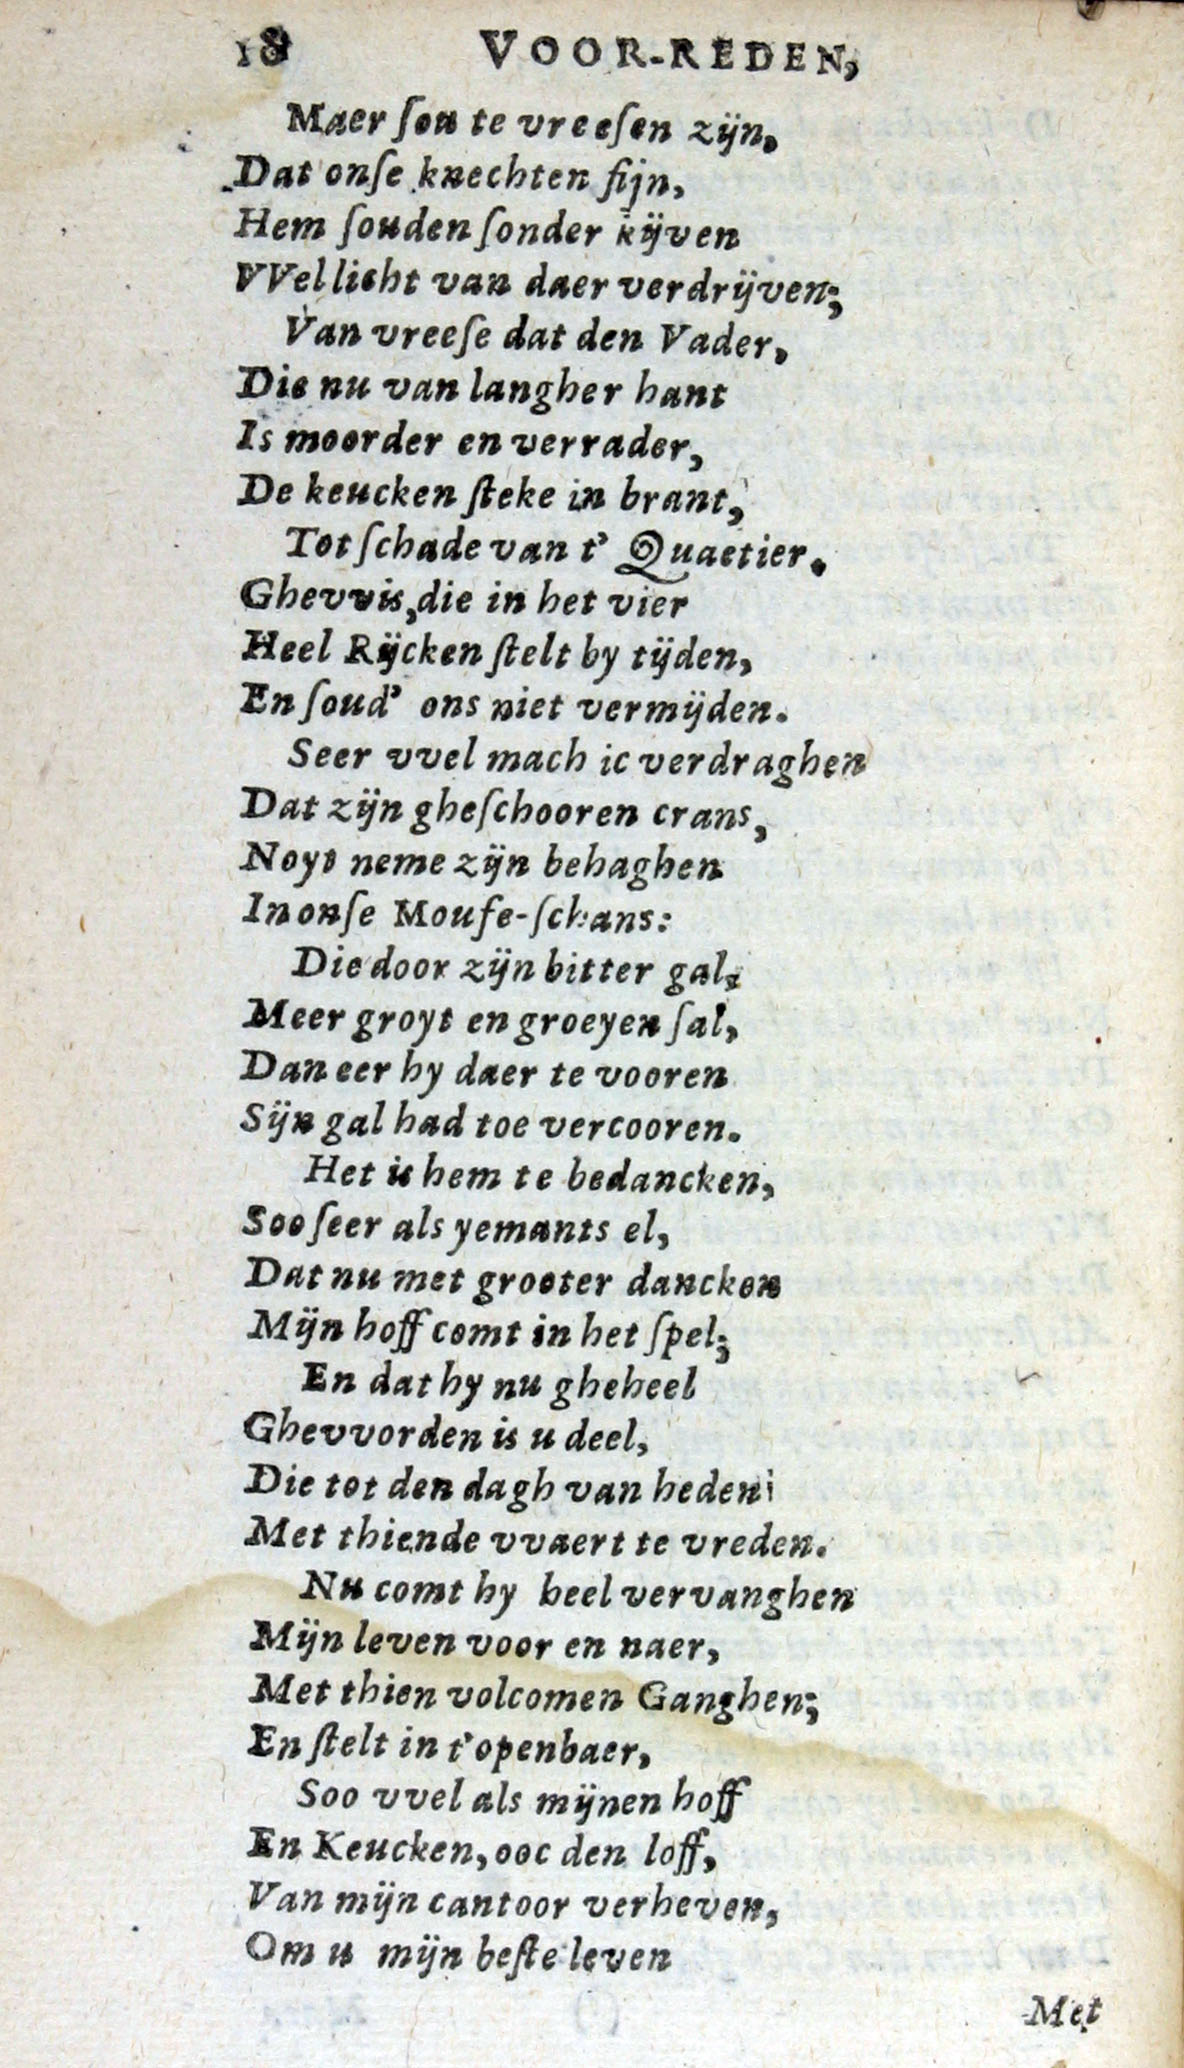 18 VOOR-REDEN,
Maer ſou te vreeſen zijn,
Dat onſe knechten fijn,
Hem ſouden ſonder kijven
VVel licht van daer verdrijven;
Van vreeſe dat den Vader,
Die nu van langher hant
Is moorder en verrader,
De keucken ſteke in brant,
Tot ſchade van t' Quaetier.
Ghevvis, die in het vier
Heel Rijcken ſtelt by tijden,
En ſoud' ons niet vermijden.
Seer vvel mach ic verdraghen
Dat zijn gheſchooren crans,
Noyt neme zijn behaghen
In onſe Moufe-ſchans:
Die door zijn bitter gal,
Meer groyt en groeyen ſal,
Dan eer hy daer te vooren
Sijn gal had toe vercooren.
Het is hem te bedancken,
Soo ſeer als yemants el,
Dat nu met grooter dancken
Mijn hoff comt in het ſpel;
En dat hy nu gheheel
Ghevvorden is u deel,
Die tot den dagh van heden
Met thiende vvaert te vreden.
Nu comt hy heel vervanghen
Mijn leven voor en naer,
Met thien volcomen Ganghen;
En ſtelt in t'openbaer,
Soo vvel als mijnen hoff
En Keucken, ooc den loff,
Van mijn cantoor verheven,
Om u mijn beſte leven
Met